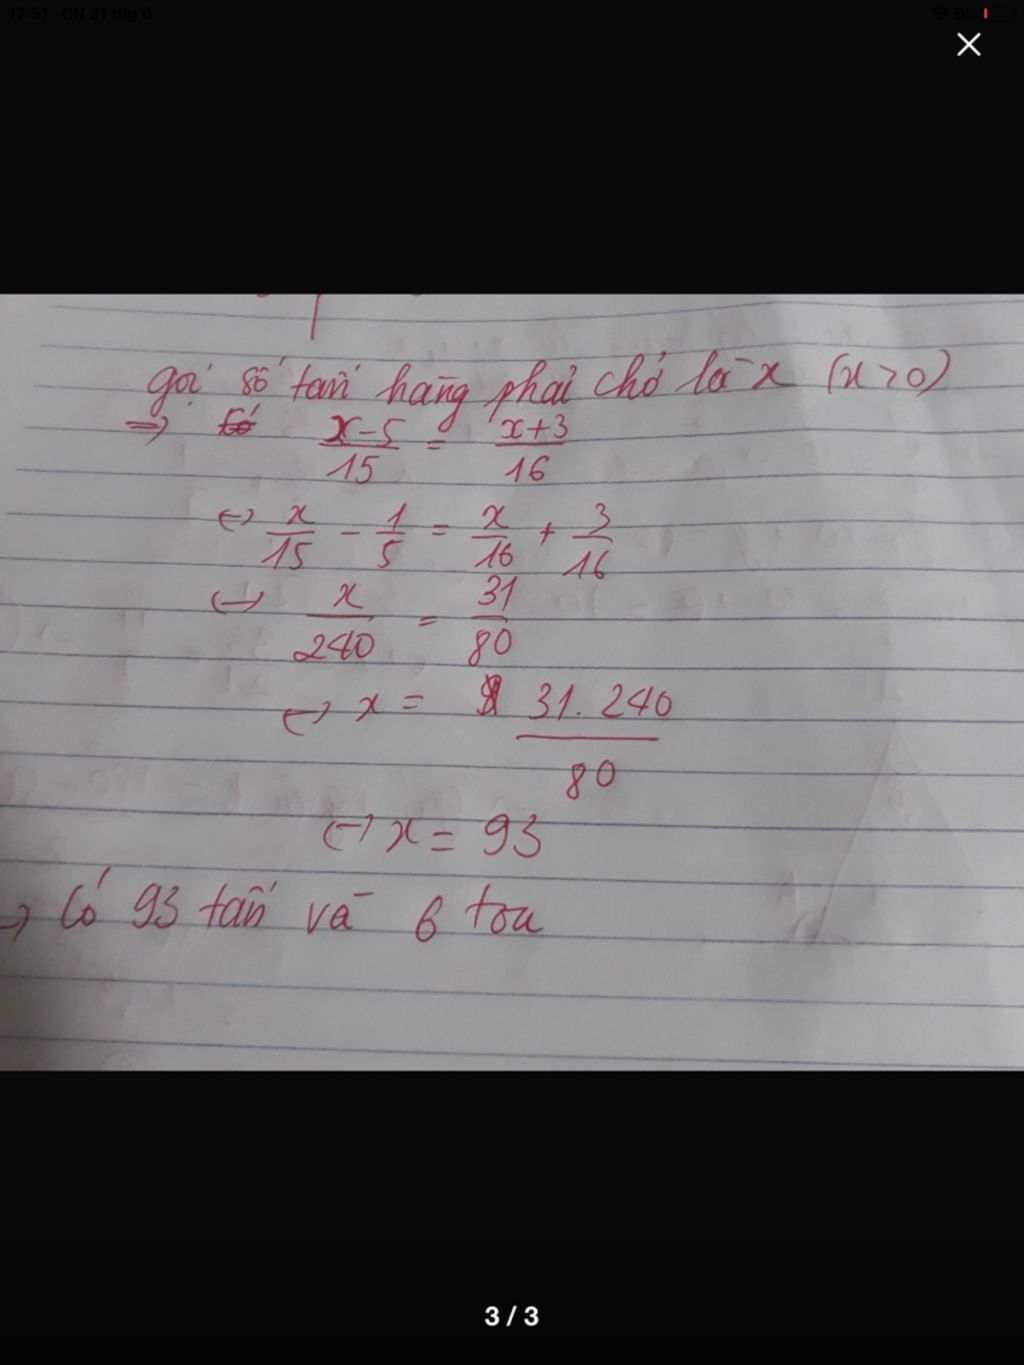 17:51 CN 21 thg 6 9%
gọi số tấn hàng phải chở là x (x > 0)
=> x-5/15 = x+3/16
<-> x/15 - 1/5 = x/16 + 3/16
<-> x/240 = 31/80
<-> x = 31.240/80
<-> x = 93
-> Có 93 tấn và 6 toa
3 / 3